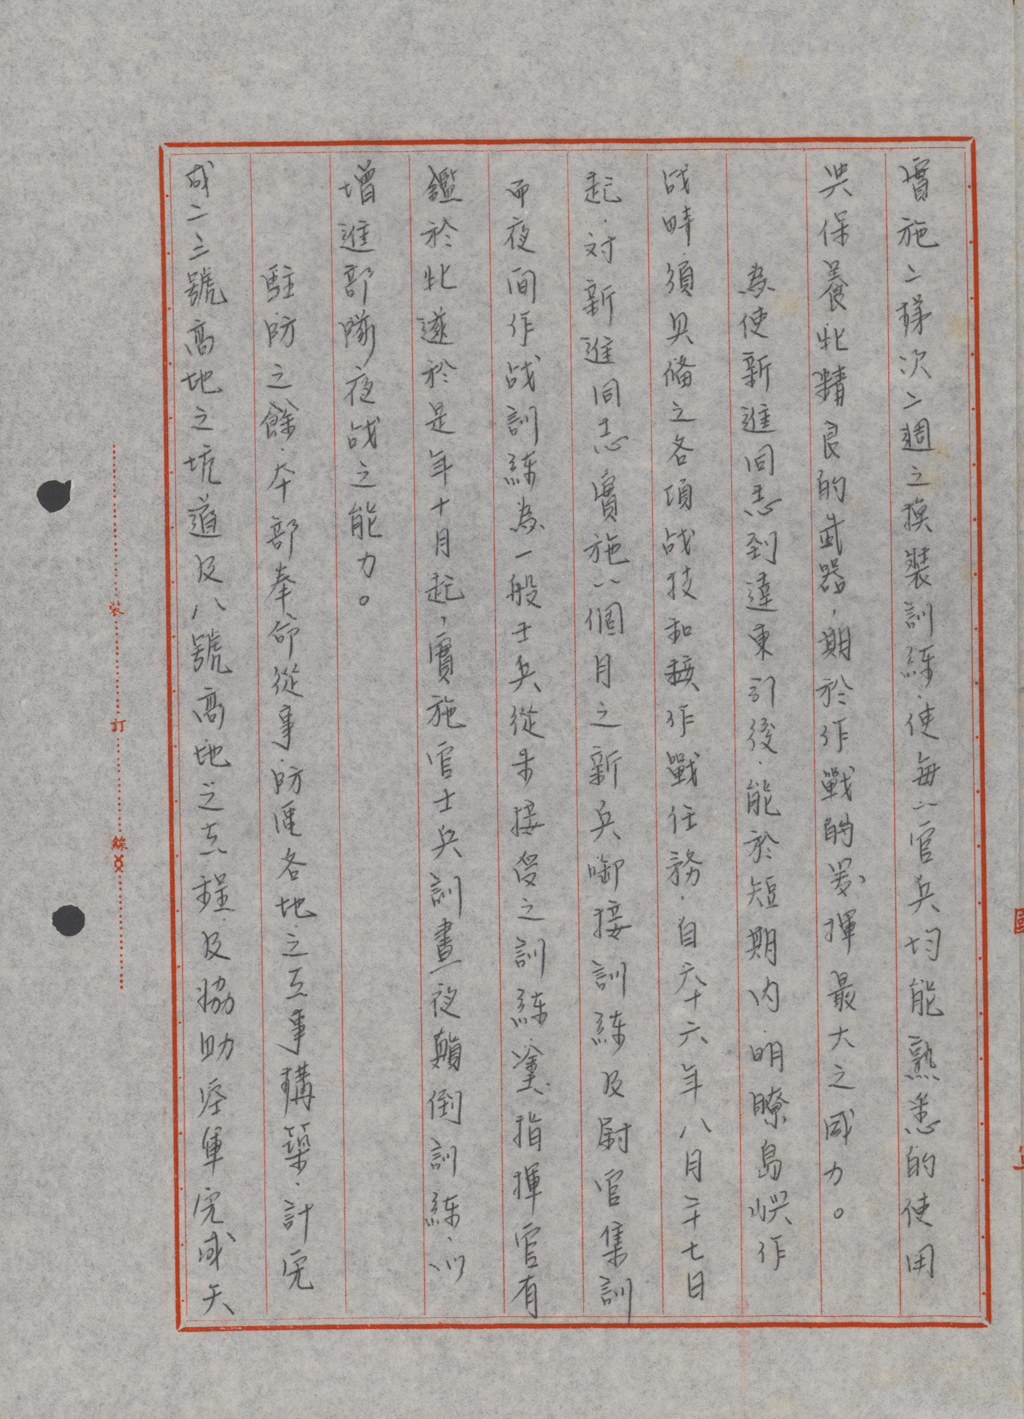 實施二梯次二週之換裝訓練．使每一官兵均能熟悉的使用
與保養此精良的武器，期於作戰時發揮最大之威力。
為使新進同志到達東引後．能於短期內．明瞭島嶼作
战時須具備之各項战技和接作戰任務．自六十六年八月二十七日
起．对新進同志實施一個月之新兵啣接訓練及尉官集訓
而夜间作战訓練為一般士兵從未接受之訓練．黨指揮官有
鑑於此遂於是年十月起，實施官士兵訓晝夜顛倒訓練．以
增進部隊夜战之能力。
駐防之餘．本部奉命從事防區各地之工事構築．計完
成二三號高地之坑道及八號高地之工程．及協助空軍完成天
裝
訂
線